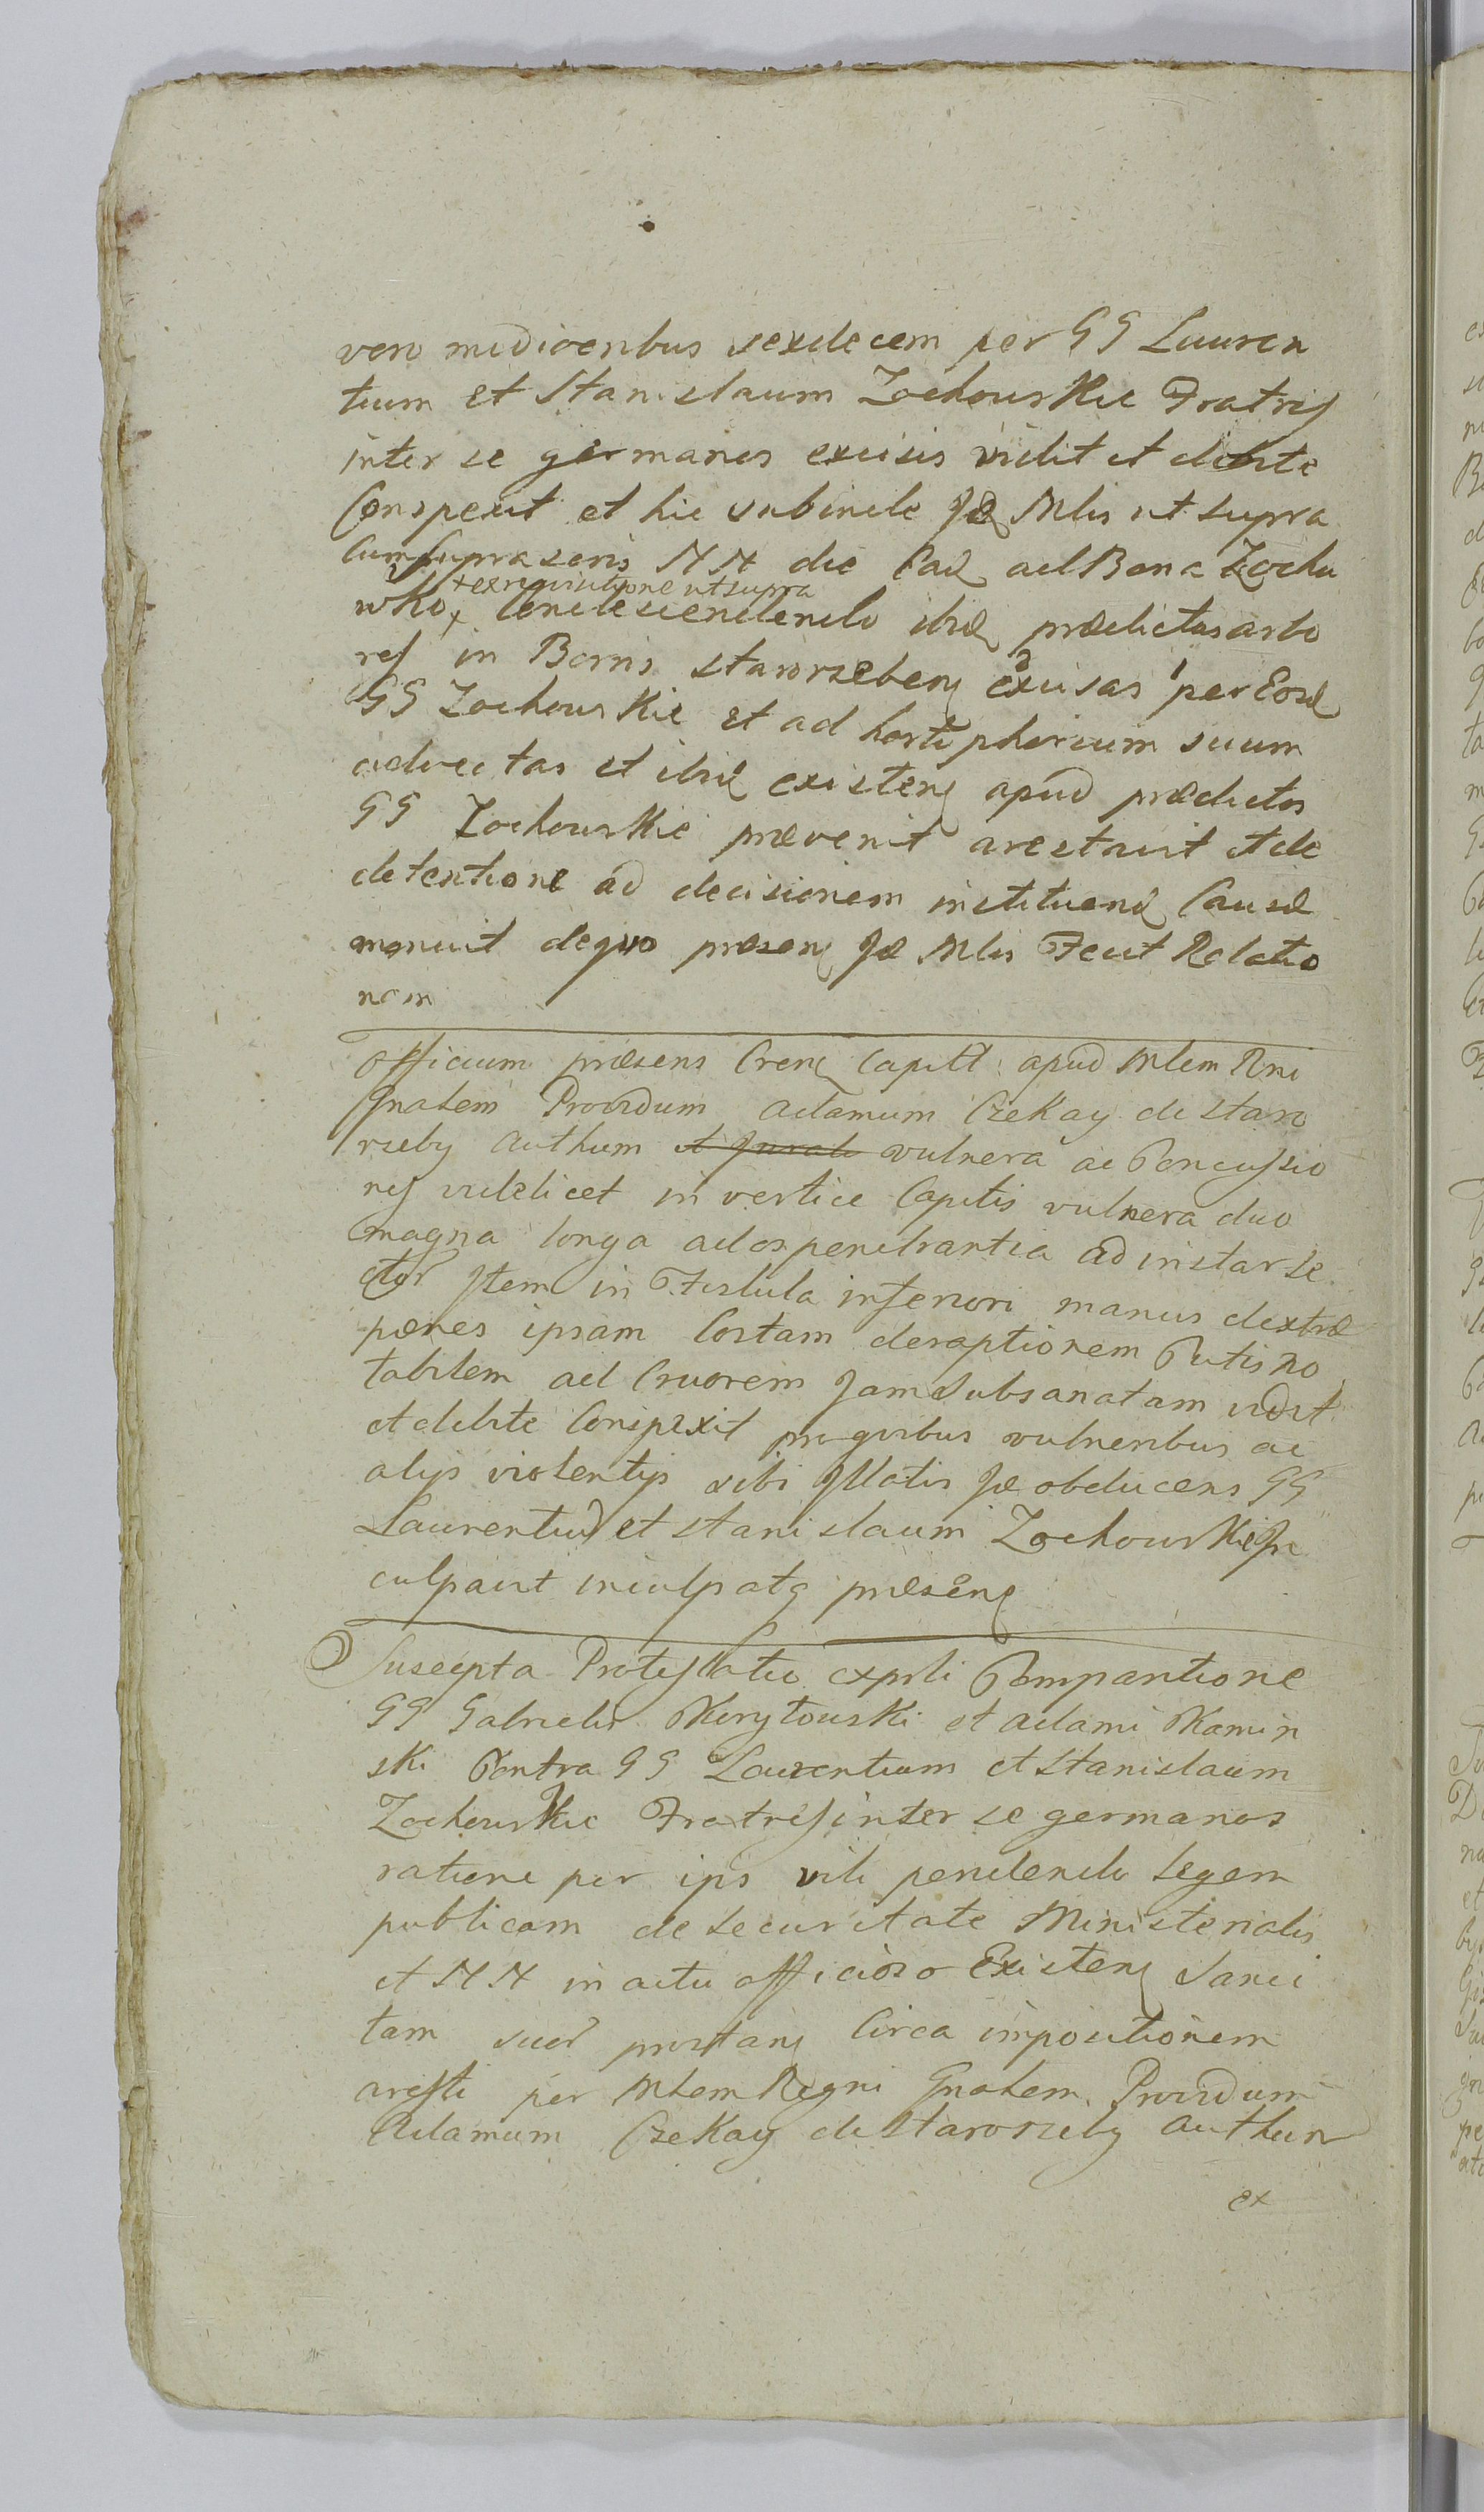 vero mediocribus sexdecem per GG Lauren
tium et Stanislaum Zochowskie Fratres
inter se germanos excisis vidit et debite
Conspexit et hic subinde Jd Mlis ut supra
cum supra scris NN die ead ad Bona Zocho
+ ex requisitione ut supra
wko + Condescendendo ibid prædictas arbo
res in Bonis starorzeben excisas per Eosd
GG Zochowskie et ad horti phorium suum
advectas et ibid existen apud prædictos
GG Zochowskie prævenit arestavit et de
detentione ad decisionem instituend Causæ
monuit de quo præsen Jd Mlis Fecit Relatio
nem
Officium præsens Cren Capitt apud Mlem Rni
Gnalem Providum Adamum Czekay de staro
rzeby Authum et Jurat vulnera ac Concussio
nes videlicet in vertice Capitis vulnera duo
magna longa ad os penetrantia ad instar se
ctor Jtem in Fistula inferiori manus dextræ
penes ipsam Costam deraptionem Cutis no
tabilem ad Cruorem Jam Subsanatam vidit
et debite Conspexit pro quibus vulneribus ac
alys violentys sibi Jllatis Jd obducens GG
Laurentium et stanislaum Zochowskie In
culpavit inculpatq præsen
Suscepta Protestatio expti Comparitione
GG Gabrielis Korytowski et Adami Kamin
ski Contra GG Laurentium et Stanislaum
Zochowskie Fratres inter se germanos
ratione per ips vili pendendo legem
publicam de securitate Ministerialis
et NN in actu officioso Existen Sanci
tam suor prostan Circa impositionem
aresti per Mlem Regni Gnalem Providum
Adamum Czekay de starorzeby Authum
ex